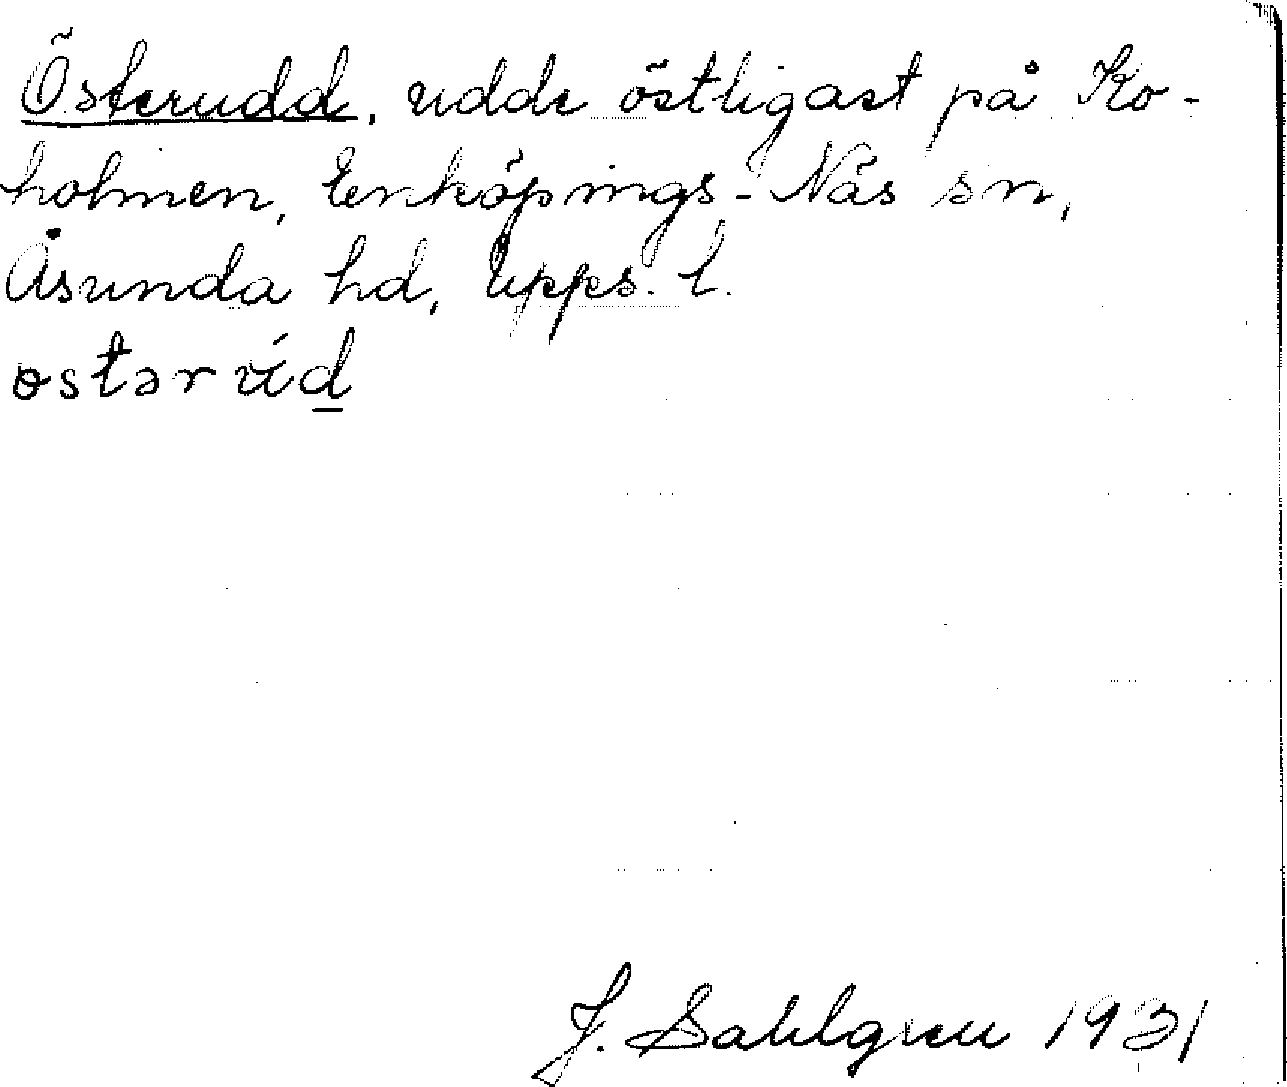 Österudd, udde östligast på Ko-
holmen, Enköpings-Näs sn,
Åsunda hd, Upps. l.
ɵstər ú́d
J. Sahlgren 1931